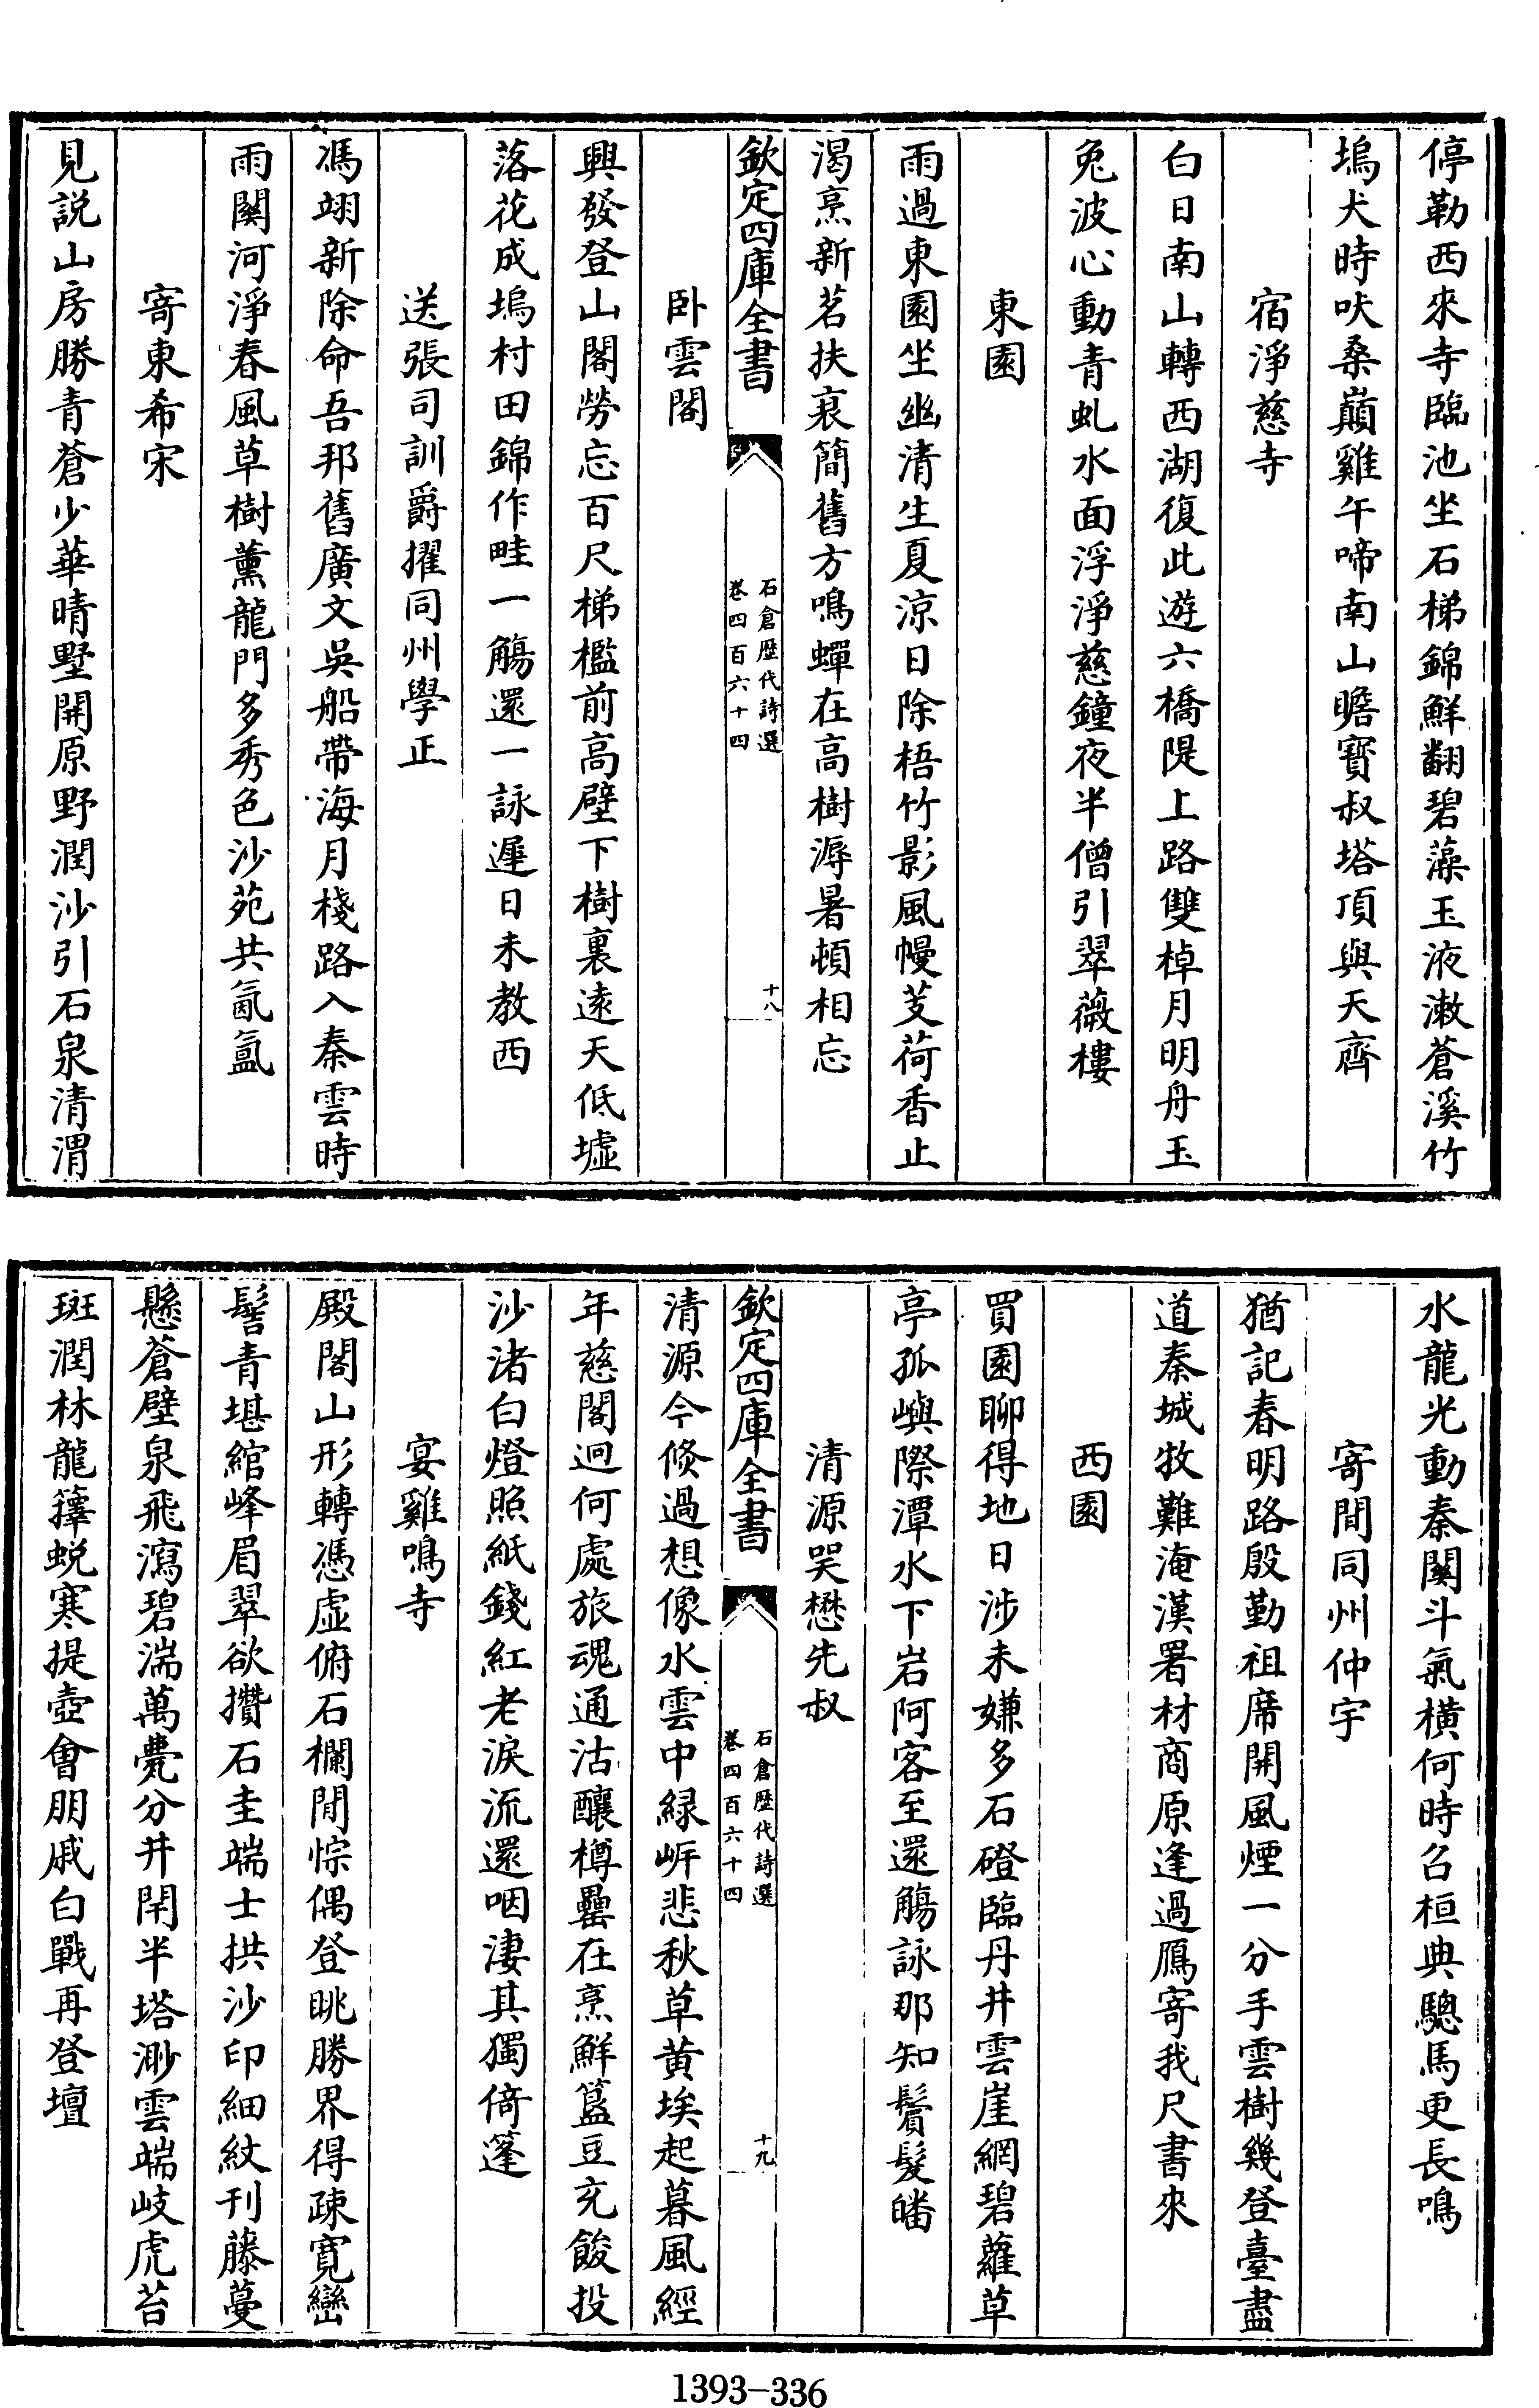 停勒西來寺臨池坐石梯錦鮮翻碧藻玉液漱蒼溪竹
塢犬時吠桑巔雞午啼南山瞻寳叔塔頂與天齊
宿淨慈寺
白日南山轉西湖復此遊六橋隄上路雙棹月明舟玉
兔波心動青虬水面浮淨慈鐘夜半僧引翠薇樓
東園
雨過東園坐幽清生夏涼日除梧竹影風幔芰荷香止
渴烹新茗扶衰簡舊方鳴蟬在高樹溽暑頓相忘
欽定四庫全書
石倉歴代詩選
卷四百六十四
十八
卧雲閣
興發登山閣勞忘百尺梯檻前高壁下樹裏逺天低墟
落花成塢村田錦作畦一觴還一詠遲日未教西
送張司訓爵擢同州學正
馮翊新除命吾邦舊廣文吳船帶海月棧路入秦雲時
雨闗河淨春風草樹薰龍門多秀色沙苑共氤氲
寄東希宋
見説山房勝青蒼少華晴墅開原野潤沙引石泉清渭
水龍光動秦闗斗氣橫何時召桓典驄馬更長鳴
寄間同州仲宇
猶記春明路殷勤祖席開風煙一分手雲樹幾登臺盡
道秦城牧難淹漢署材商原逢過鴈寄我尺書來
西園
買園聊得地日涉未嫌多石磴臨丹井雲崖網碧蘿草
亭孤嶼際潭水下岩阿客至還觴詠那知鬢髮皤
清源哭懋先叔
欽定四庫全書
石倉歴代詩選
卷四百六十四
十九
清源今倐過想像水雲中緑㟁悲秋草黄埃起暮風經
年慈閣迥何處旅魂通沽釀樽罍在烹鮮簋豆充餕投
沙渚白燈照紙錢紅老淚流還咽淒其獨倚篷
宴雞鳴寺
殿閣山形轉憑虚俯石欄閒悰偶登眺勝界得疎寛巒
髻青堪綰峰眉翠欲攢石圭端士拱沙印細紋刊藤蔓
懸蒼壁泉飛瀉碧湍萬甍分井閈半塔渺雲端岐虎苔
斑潤林龍籜蜕寒提壺會朋戚白戰再登壇
1393-336